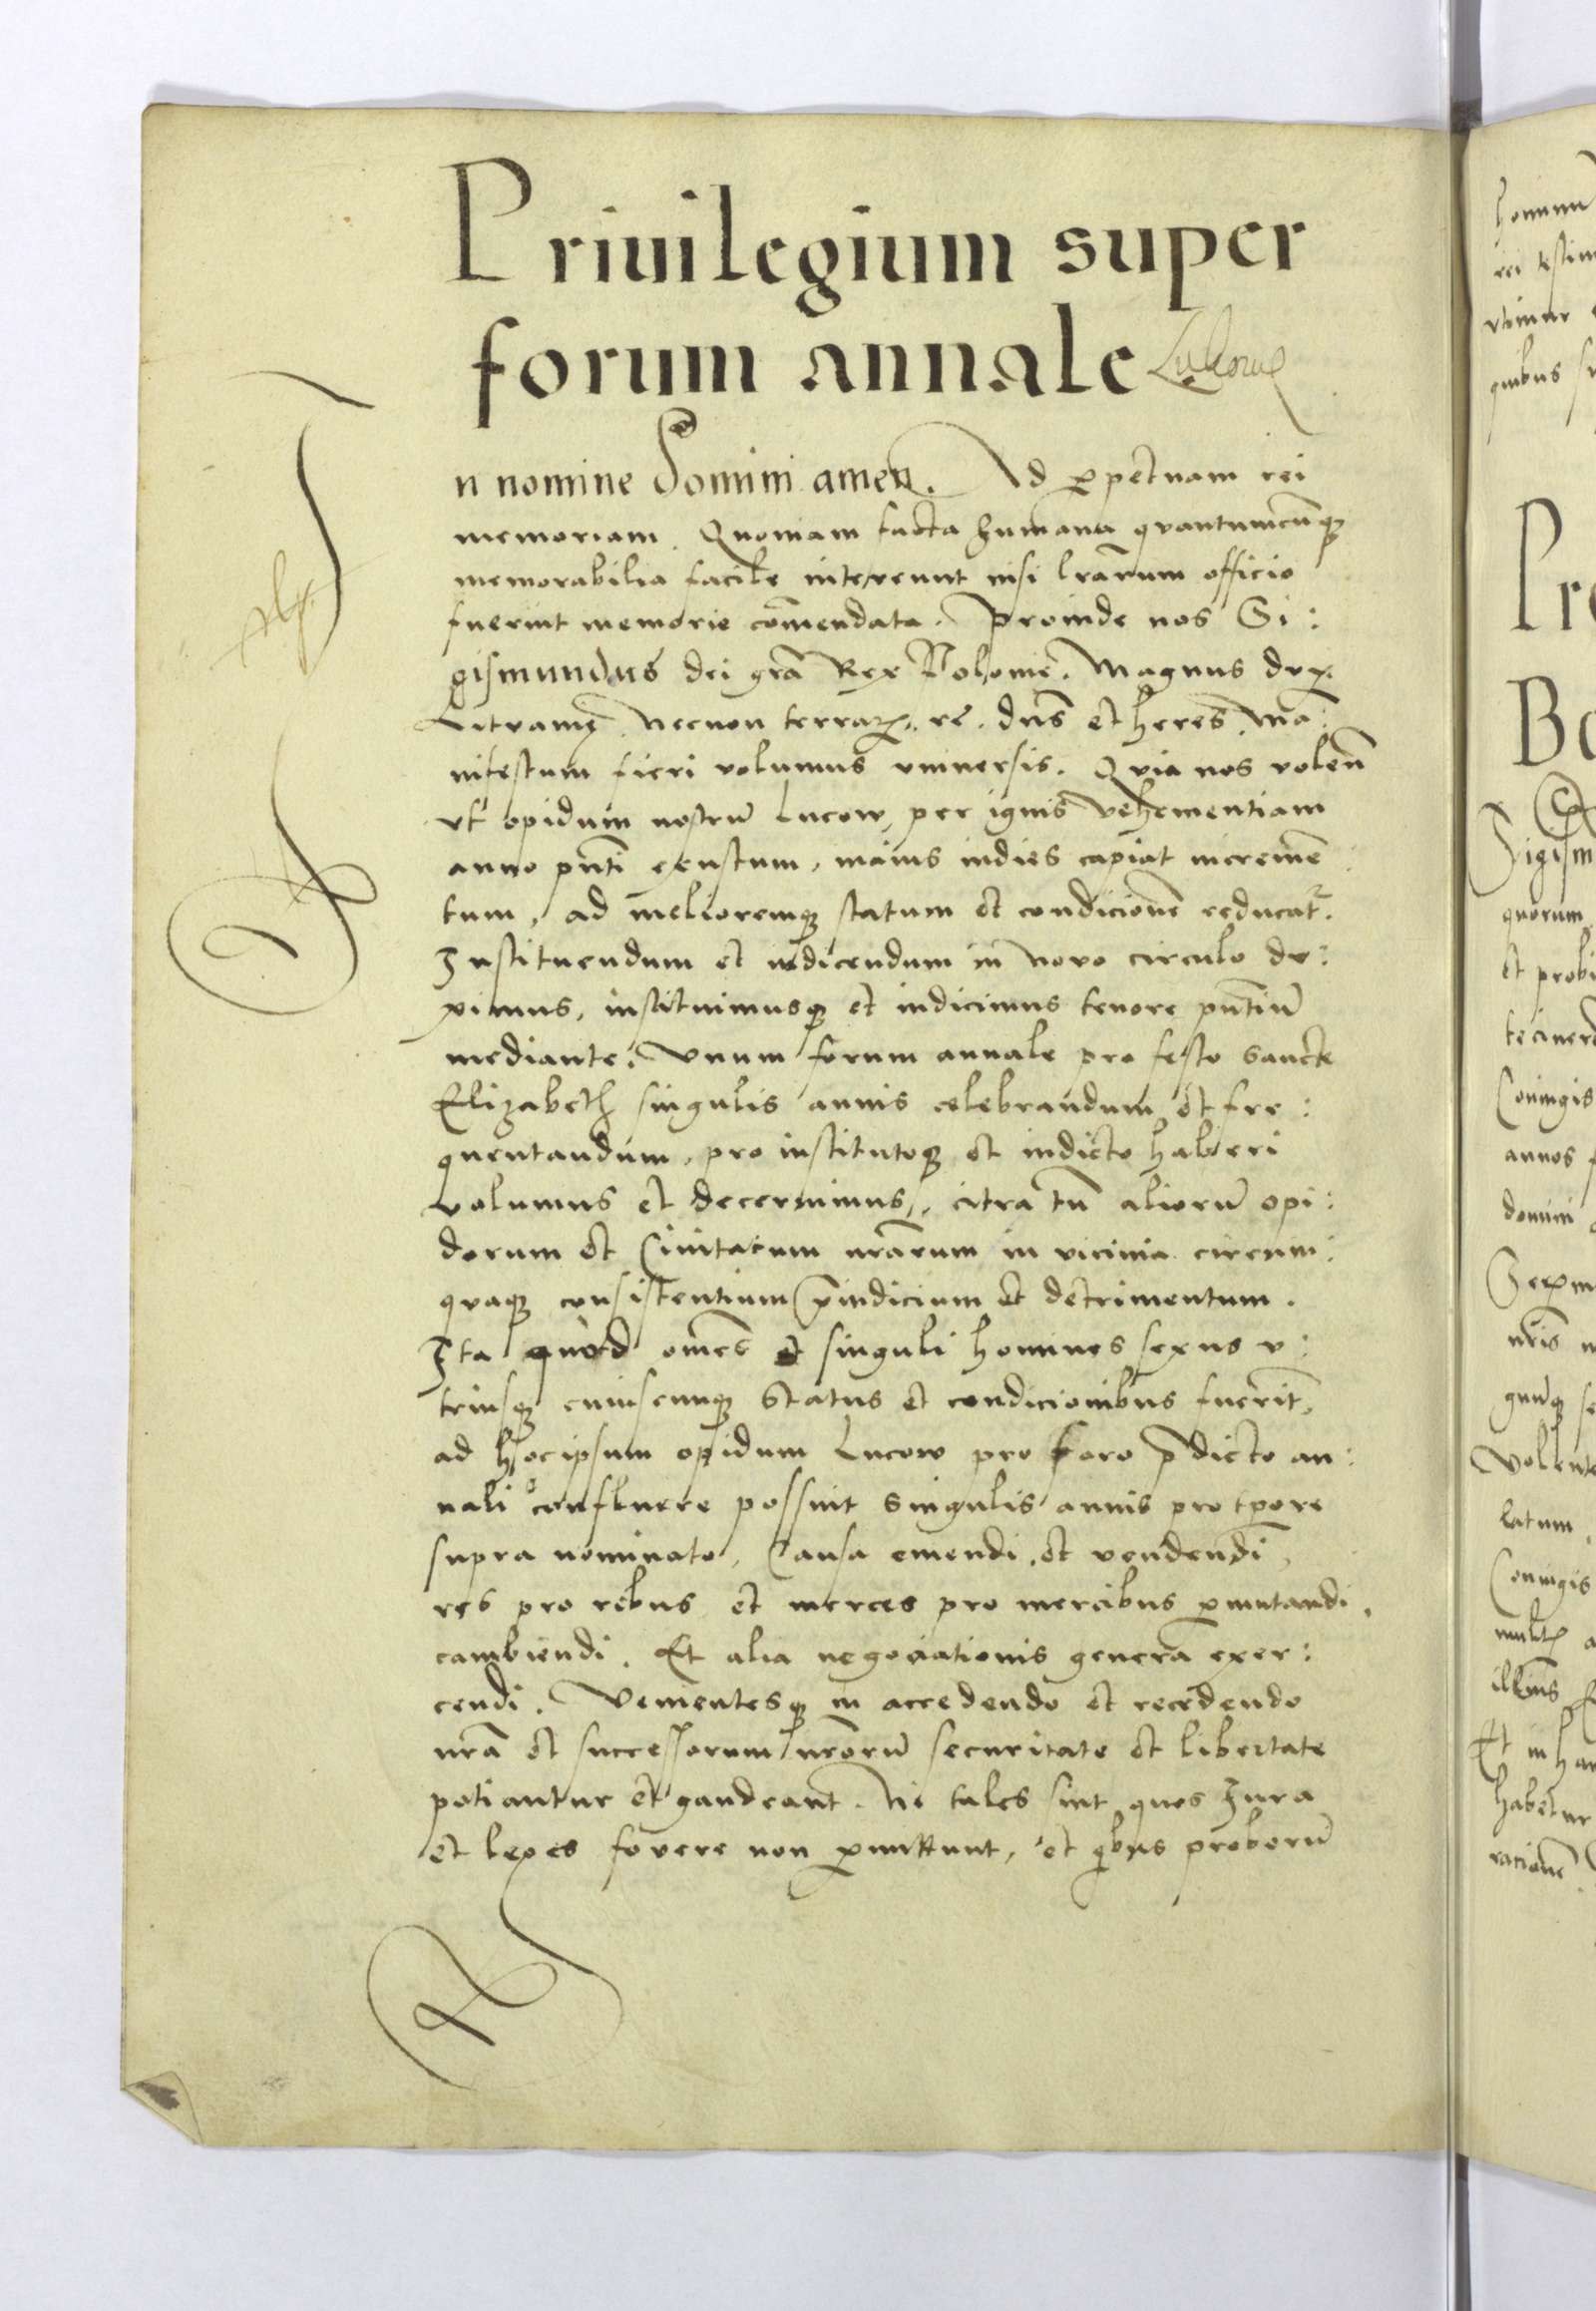 Priuilegium super
forum annale
In nomine Domini amen. Ad ꝑpetuam rei
memoriam. Quoniam facta humana quantumcūqꝫ
memorabilia facile intereunt nisi lrārum officio
fuerint memorie cōmendata. Proinde nos Si:
gismundus dei grā Rex Polonie. Magnus dux
Lituanię. Necnon terraꝝ. rc̄. dn̄s et heres. Ma:
nifestum fieri volumus vniuersis. Quia nos volen̄
vt opidum nostrū Lucow, per ignis vehementiam
anno pn̄ti exustum, maius indies capiat incremē
tum, ad melioremqꝫ statum et condicionē reducat᷑.
Instituendum et indicendum in Nouo circulo du:
ximus, instituimusqꝫ et indicimus tenore pn̄tiū
mediante. Vnum forum annale pro festo Sancte
Elizabeth singulis annis celebrandum et fre:
quentandum, pro institutoqꝫ et indicto haberi
volumus et decernimus, citra tn̄ aliorū opi:
dorum et Ciuitatum nr̄arum in vicinia circum:
quaqꝫ consistentium p̄iudicium et detrimentum.
Ita quod om̄es et singuli homines sexus v:
triusqꝫ cuiuscunqꝫ Status et condicionibus fuerīt,
ad hoc ipsum opidum Lucow pro foro p̄dicto an:
nali confluere possint Singulis annis pro tp̄ore
supra nominato, Causa emendi et vendendi,
res pro rebus et merces pro mercibus ꝑmutandi,
cambiendi. Et alia negociationis genera exer:
cendi. Venientesqꝫ in accedendo et recedendo
nr̄a et successorum nr̄orū securitate et libertate
potiantur et gaudeant. Ni tales sint quos Iura
et leges fouere non ꝑmittunt, et qͥbus proborū